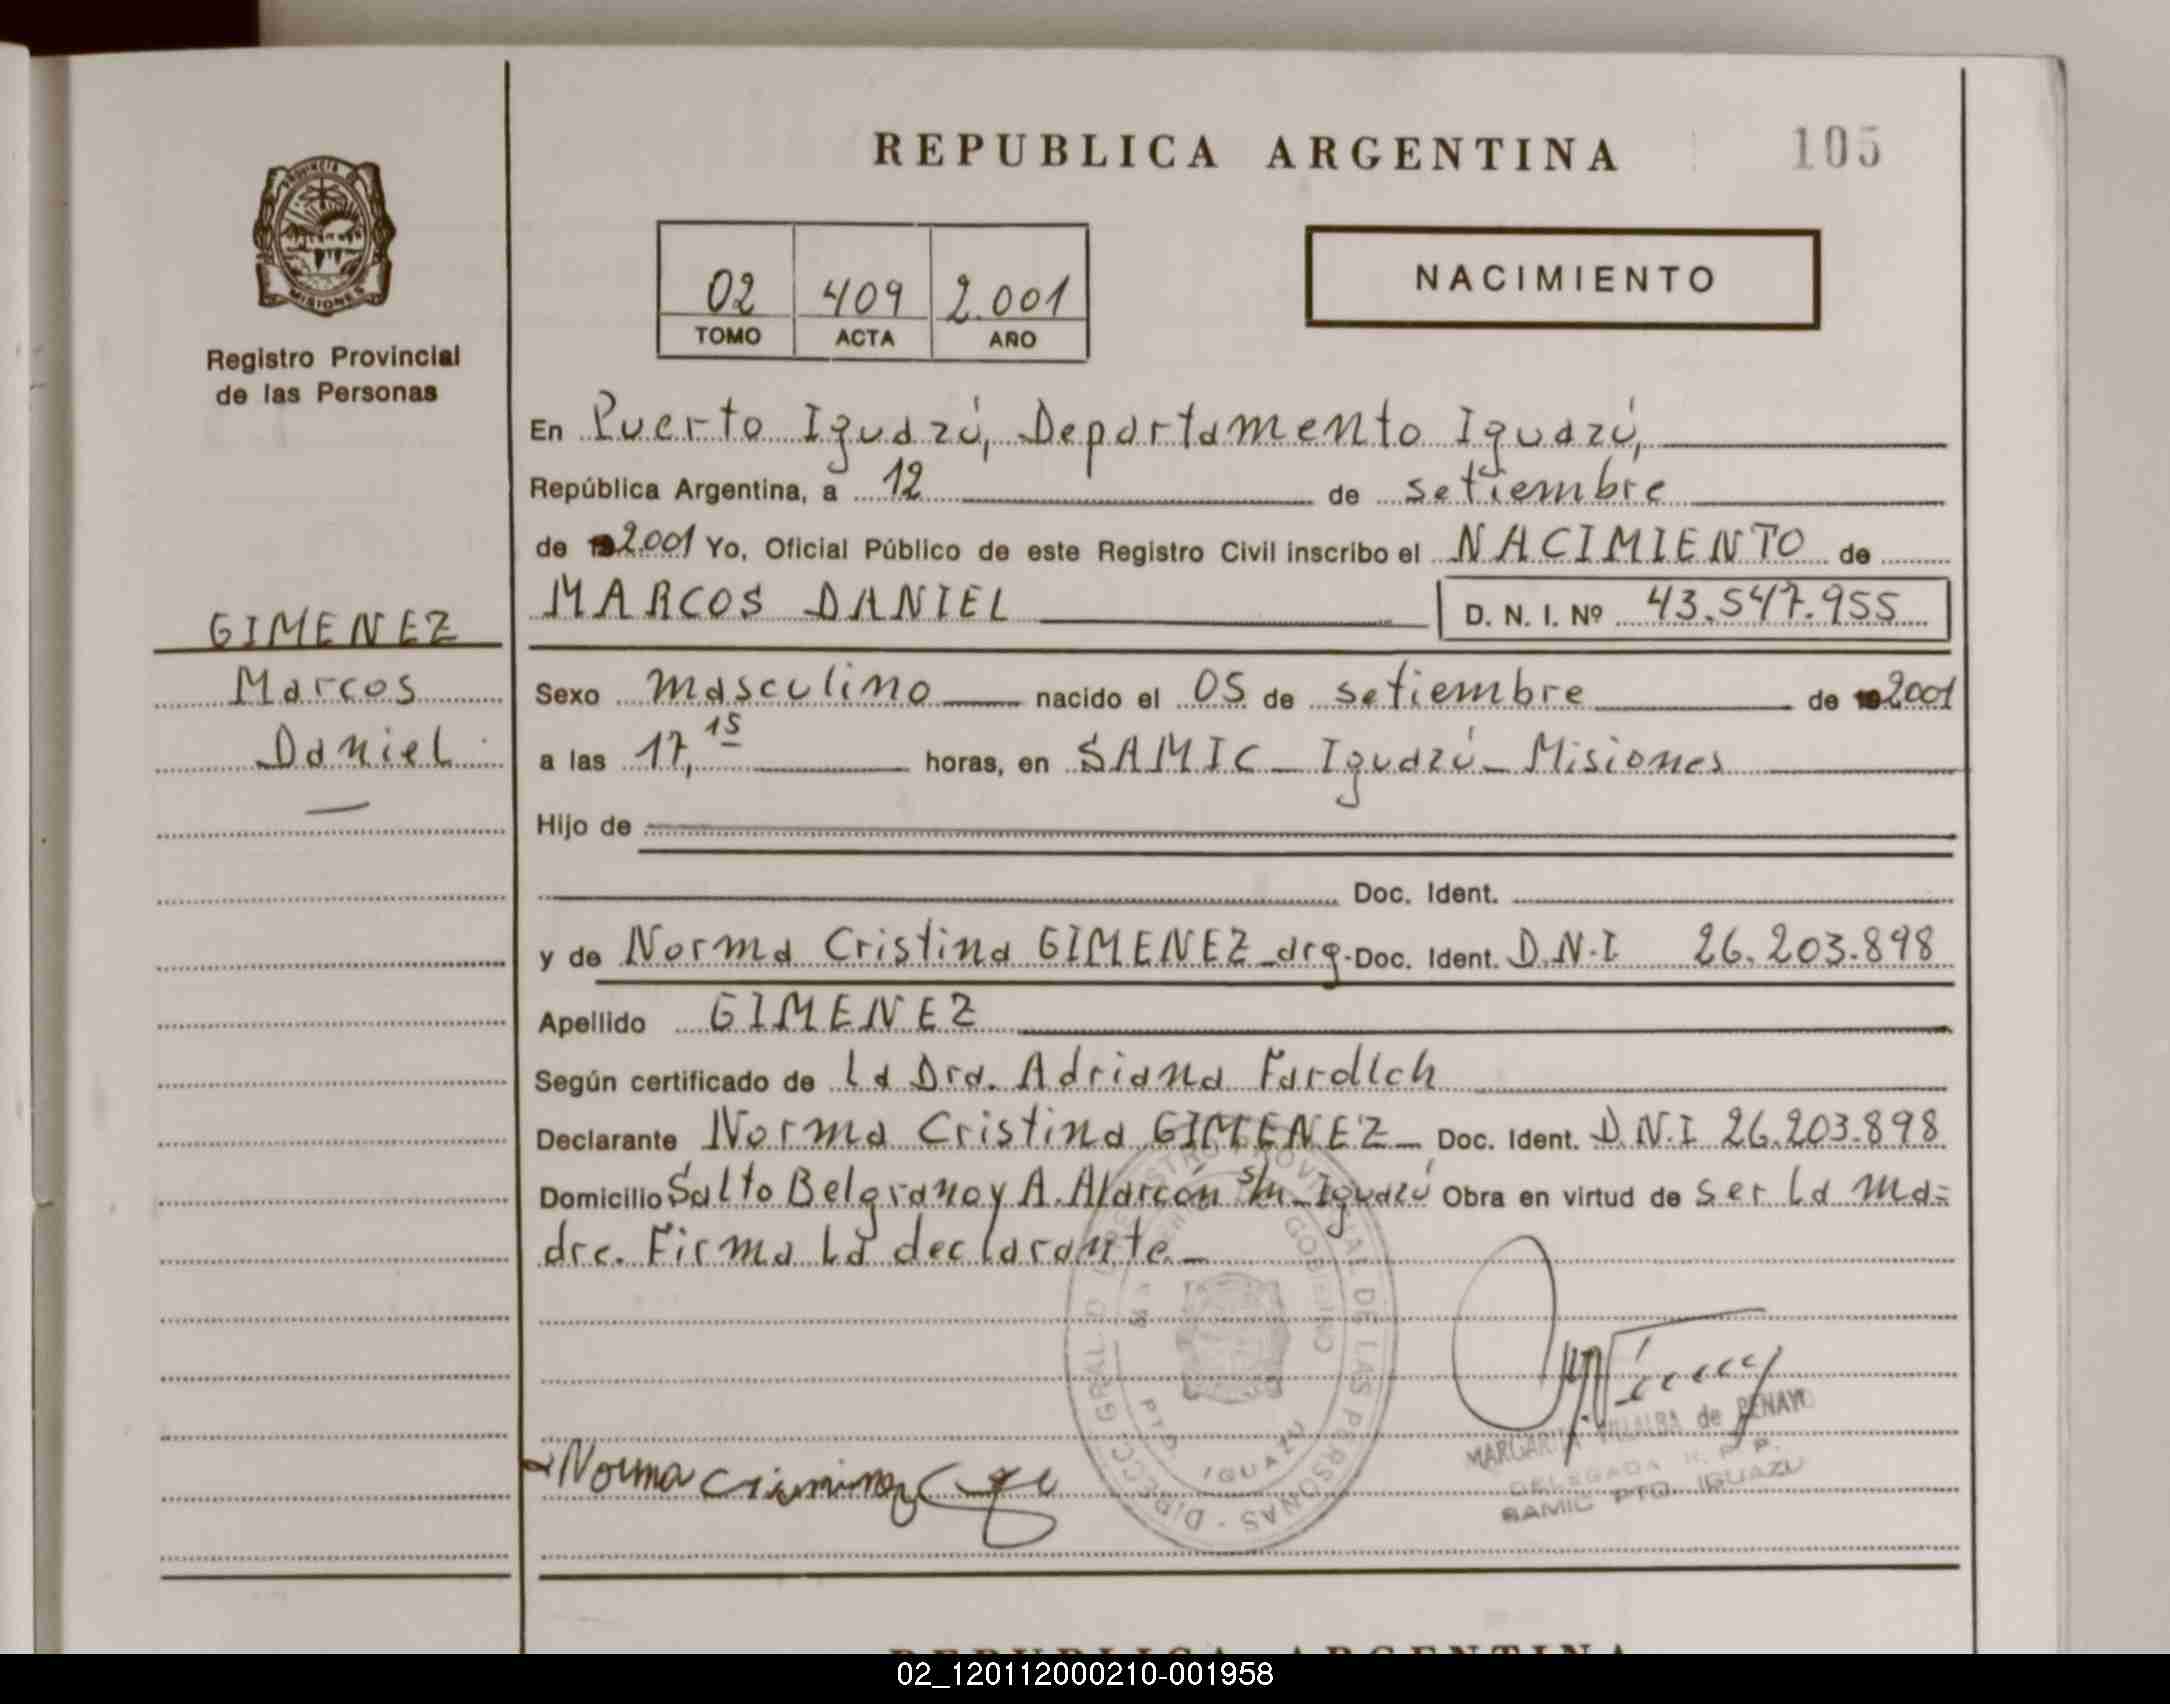 REPUBLICA ARGENTINA
105
PROVINCIA DE
MISIONES
Registro Provincial
de las Personas
02 409 2.001
TOMO ACTA AÑO
NACIMIENTO
En Puerto Iguazú, Departamento Iguazú,
República Argentina, a 12 de setiembre
de 2001 Yo, Oficial Público de este Registro Civil inscribo el NACIMIENTO de
MARCOS DANIEL D. N. I. Nº 43.547.955
GIMENEZ
Marcos
Daniel
Sexo masculino nacido el 05 de setiembre de 2001
a las 17,15 horas, en SAMIC - Iguazú - Misiones
Hijo de
Doc. Ident.
y de Norma Cristina GIMENEZ - arg. Doc. Ident. D.N.I 26.203.898
Apellido GIMENEZ
Según certificado de la Dra. Adriana
Declarante Norma Cristina GIMENEZ - Doc. Ident. D.N.I 26.203.898
Domicilio Salto Belgrano y A. Alarcón s/n - Iguazú Obra en virtud de ser la ma=
dre. Firma la declarante.-
DIRECC. GRAL. DEL REGISTRO PROVINCIAL DE LAS PERSONAS
GOBIERNO
PTO IGUAZU
Norma
MARGARITA VILLALBA de PENAYO
DELEGADA R. P. P.
SAMIC PTO. IGUAZU
REPUBLICA ARGENTINA
02_120112000210-001958